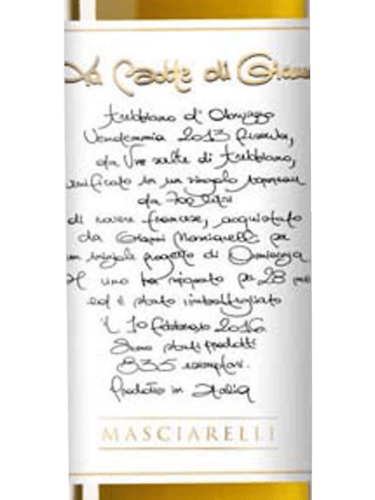 La Botte di Gianni
Trebbiano d'Abruzzo
Vendemmia 2013 Riserva,
da Uve scelte di trebbiano,
vinificato in un singolo tonneau
da 700 litri
di rovere francese, acquistato
da Gianni Masciarelli per
un singolo progetto di
uno ha riposato per 28
ed è stato imbottigliato
il 10 febbraio 2016
Sono stati prodotti
835 esemplari.
Prodotto in Italia
MASCIARELLI